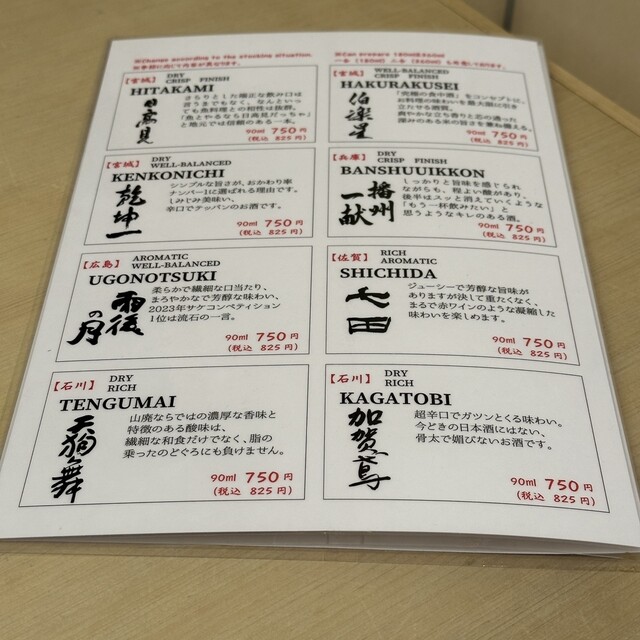 ※Change according to the stocking situation.
※季節に応じて内容が異なります。
※Can prepare 180ml&360ml
一合 (180ml) 二合 (360ml) も用意しております。
【宮城】
DRY
CRISP FINISH
HITAKAMI
日高見
さらりとした端正な飲み口は
言うまでもなく、なんといっ
ても魚料理との相性は抜群。
「魚とやるなら日高見だっちゃ」
と地元では信頼のある一本。
90ml 750円
(税込 825円)
【宮城】
WELL-BALANCED
CRISP FINISH
HAKURAKUSEI
伯楽星
「究極の食中酒」をコンセプトに、
お料理の味わいを最大限に引き
立たせる酒質。
爽やかな立ち香りと芯の通った
深みのある米の旨さを兼ね備える。
90ml 750円
(税込 825円)
【宮城】
DRY
WELL-BALANCED
KENKONICHI
乾坤一
シンプルな旨さが、おかわり率
ナンバー1に選ばれる理由です。
しみじみ美味い、
辛口でテッパンのお酒です。
90ml 750円
(税込 825円)
【兵庫】
DRY
CRISP FINISH
BANSHUUIKKON
播州
一献
しっかりと旨味を感じられ
ながらも、程よい酸があり、
後半はスッと消えていくような
「もう一杯飲みたい」と
思うようなキレのある酒。
90ml 750円
(税込 825円)
【広島】
AROMATIC
WELL-BALANCED
UGONOTSUKI
雨後
の月
柔らかで繊細な口当たり、
まろやかなで芳醇な味わい、
2023年サケコンペティション
1位は流石の一言。
90ml 750円
(税込 825円)
【佐賀】
RICH
AROMATIC
SHICHIDA
七田
ジューシーで芳醇な旨味が
ありますが決して重たくなく、
まるで赤ワインのような凝縮した
味わいを楽しめます。
90ml 750円
(税込 825円)
【石川】
DRY
RICH
TENGUMAI
天狗舞
山廃ならではの濃厚な香味と
特徴のある酸味は、
繊細な和食だけでなく、脂の
乗ったのどぐろにも負けません。
90ml 750円
(税込 825円)
【石川】
DRY
RICH
KAGATOBI
加賀鳶
超辛口でガツンとくる味わい。
今どきの日本酒にはない、
骨太で媚びないお酒です。
90ml 750円
(税込 825円)